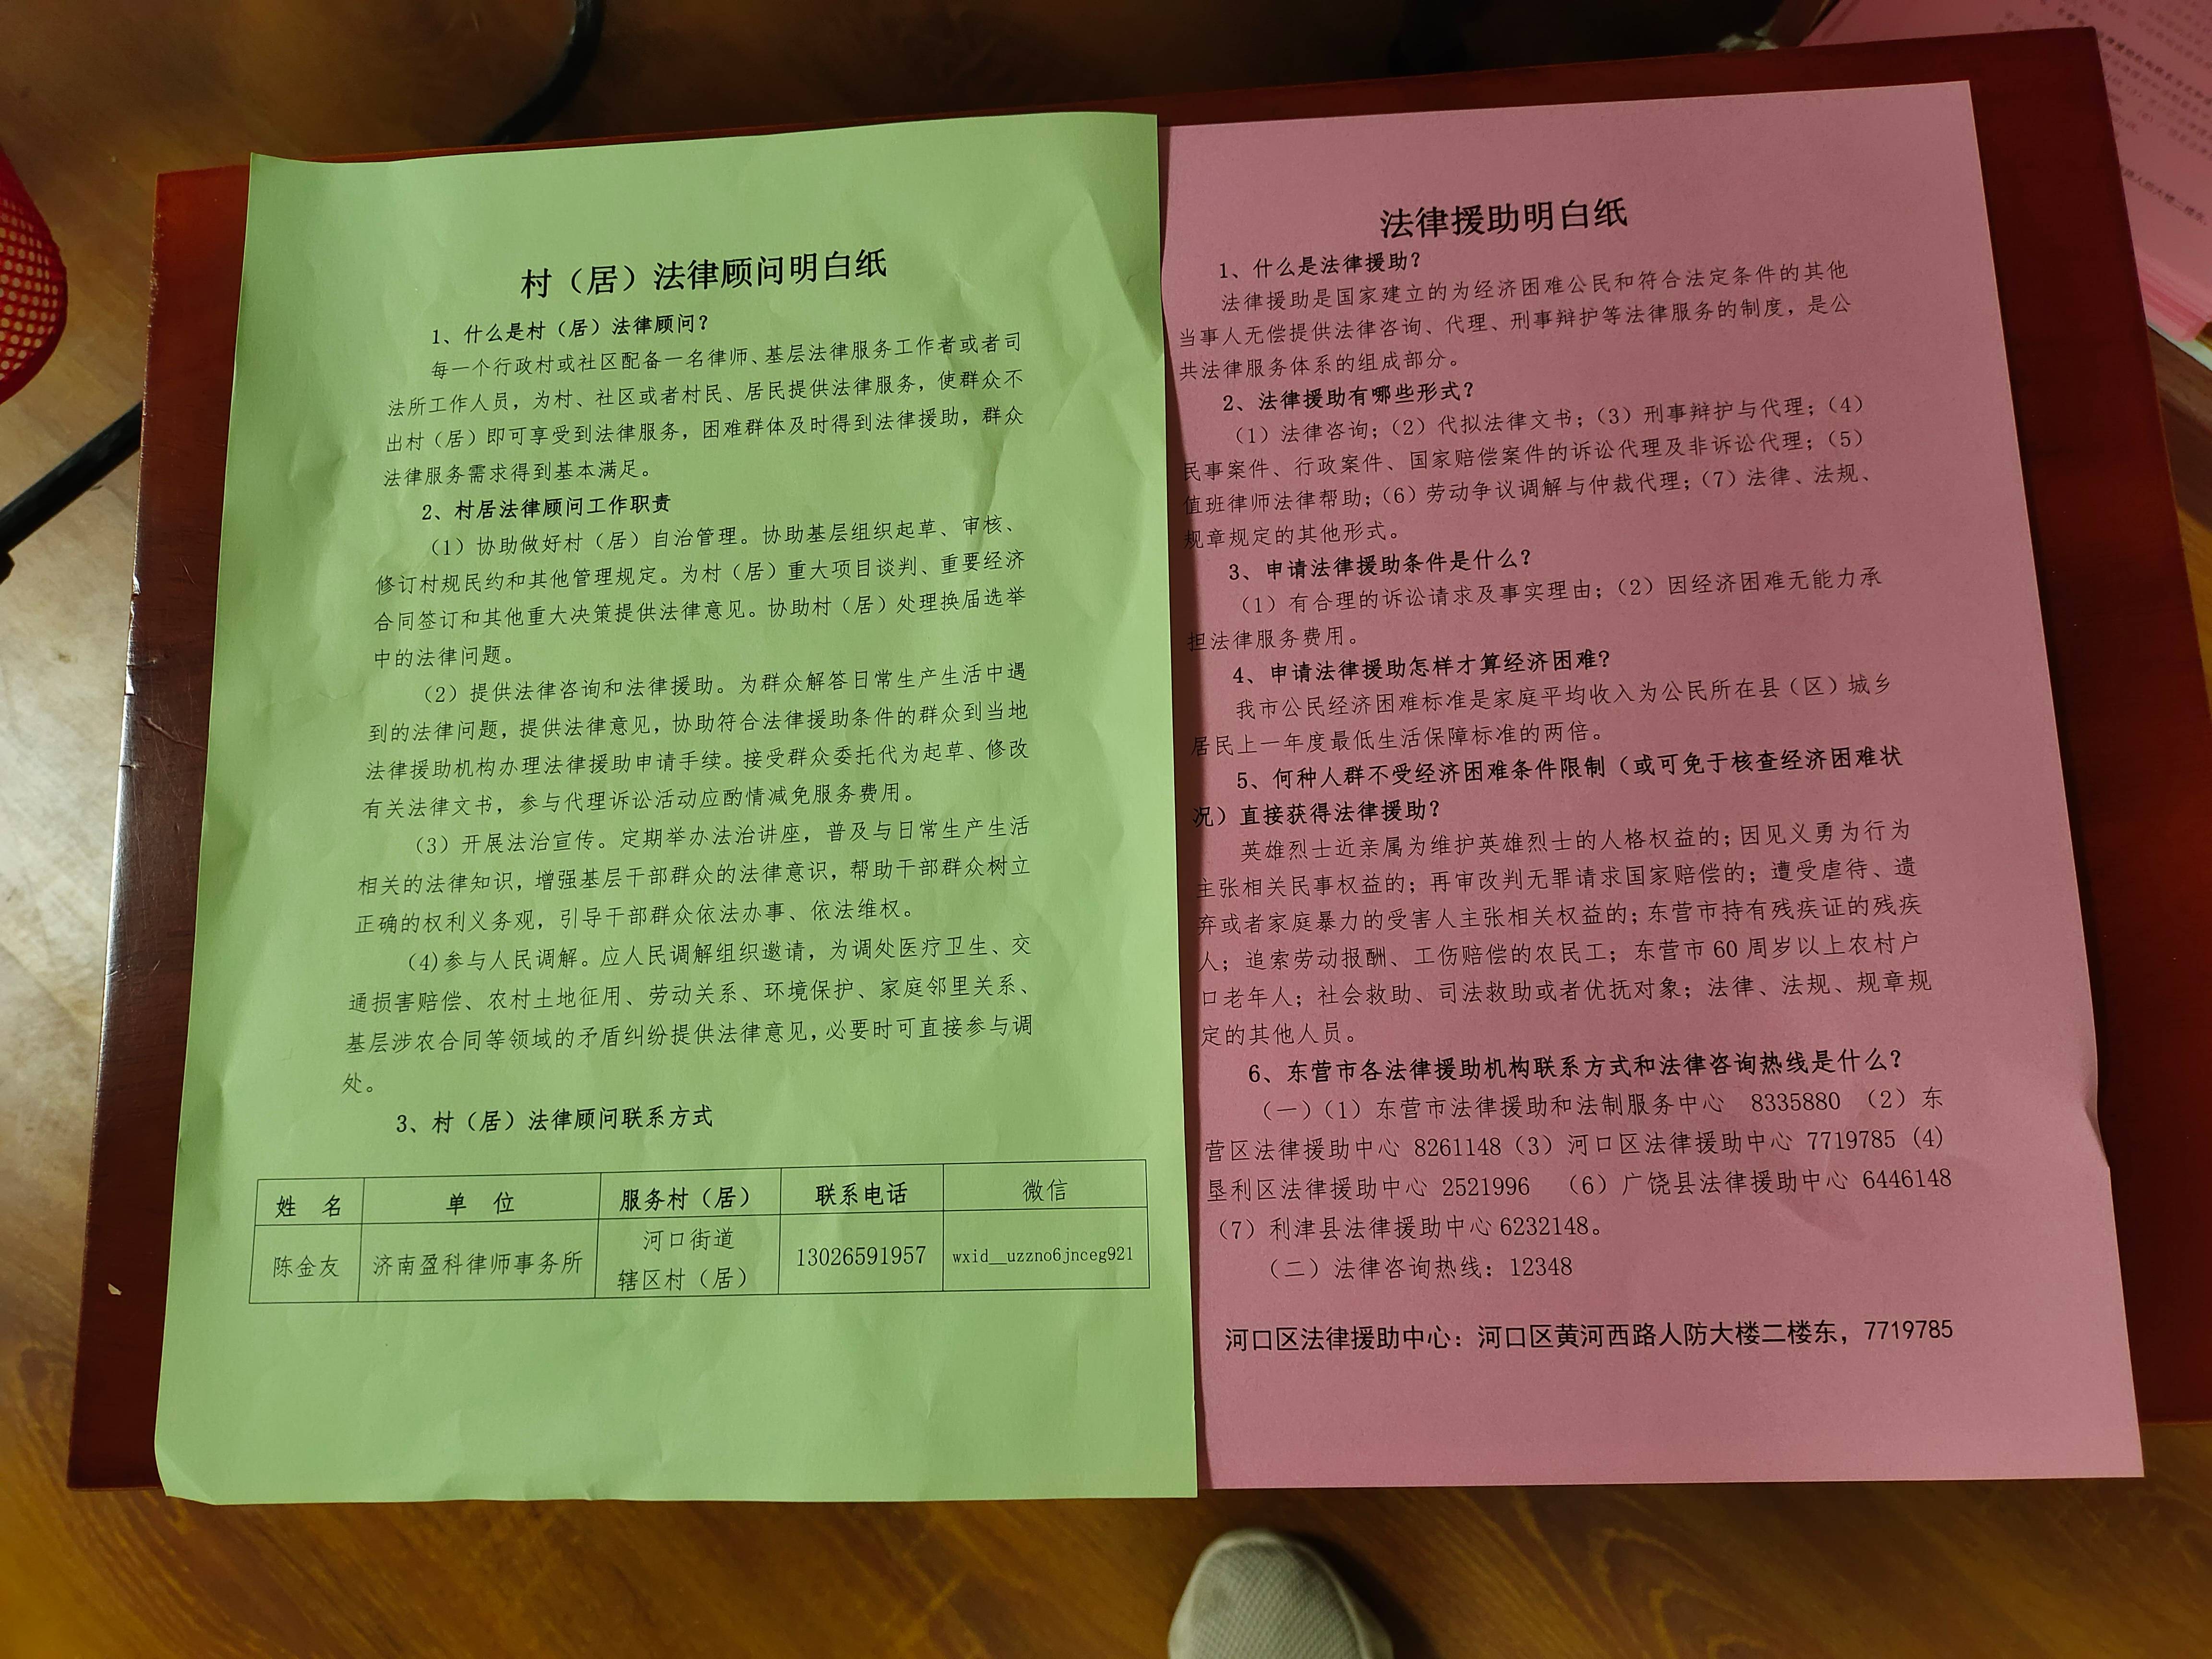 村（居）法律顾问明白纸
1、什么是村（居）法律顾问？
每一个行政村或社区配备一名律师、基层法律服务工作者或者司
法所工作人员，为村、社区或者村民、居民提供法律服务，使群众不
出村（居）即可享受到法律服务，困难群体及时得到法律援助，群众
法律服务需求得到基本满足。
2、村居法律顾问工作职责
（1）协助做好村（居）自治管理。协助基层组织起草、审核、
修订村规民约和其他管理规定。为村（居）重大项目谈判、重要经济
合同签订和其他重大决策提供法律意见。协助村（居）处理换届选举
中的法律问题。
（2）提供法律咨询和法律援助。为群众解答日常生产生活中遇
到的法律问题，提供法律意见，协助符合法律援助条件的群众到当地
法律援助机构办理法律援助申请手续。接受群众委托代为起草、修改
有关法律文书，参与代理诉讼活动应酌情减免服务费用。
（3）开展法治宣传。定期举办法治讲座，普及与日常生产生活
相关的法律知识，增强基层干部群众的法律意识，帮助干部群众树立
正确的权利义务观，引导干部群众依法办事、依法维权。
（4)参与人民调解。应人民调解组织邀请，为调处医疗卫生、交
通损害赔偿、农村土地征用、劳动关系、环境保护、家庭邻里关系、
基层涉农合同等领域的矛盾纠纷提供法律意见，必要时可直接参与调
处。
3、村（居）法律顾问联系方式
姓 名 单 位 服务村（居） 联系电话 微信
陈金友 济南盈科律师事务所 河口街道 辖区村（居） 13026591957 wxid__uzzno6jnceg921
法律援助明白纸
1、什么是法律援助？
法律援助是国家建立的为经济困难公民和符合法定条件的其他
当事人无偿提供法律咨询、代理、刑事辩护等法律服务的制度，是公
共法律服务体系的组成部分。
2、法律援助有哪些形式？
（1）法律咨询；（2）代拟法律文书；（3）刑事辩护与代理；（4）
民事案件、行政案件、国家赔偿案件的诉讼代理及非诉讼代理；（5）
值班律师法律帮助；（6）劳动争议调解与仲裁代理；（7）法律、法规、
规章规定的其他形式。
3、申请法律援助条件是什么？
（1）有合理的诉讼请求及事实理由；（2）因经济困难无能力承
担法律服务费用。
4、申请法律援助怎样才算经济困难？
我市公民经济困难标准是家庭平均收入为公民所在县（区）城乡
居民上一年度最低生活保障标准的两倍。
5、何种人群不受经济困难条件限制（或可免于核查经济困难状
况）直接获得法律援助？
英雄烈士近亲属为维护英雄烈士的人格权益的；因见义勇为行为
主张相关民事权益的；再审改判无罪请求国家赔偿的；遭受虐待、遗
弃或者家庭暴力的受害人主张相关权益的；东营市持有残疾证的残疾
人；追索劳动报酬、工伤赔偿的农民工；东营市60周岁以上农村户
口老年人；社会救助、司法救助或者优抚对象；法律、法规、规章规
定的其他人员。
6、东营市各法律援助机构联系方式和法律咨询热线是什么？
（一）（1）东营市法律援助和法制服务中心 8335880 （2）东
营区法律援助中心 8261148（3）河口区法律援助中心 7719785 (4)
垦利区法律援助中心 2521996 （6）广饶县法律援助中心 6446148
（7）利津县法律援助中心6232148。
（二）法律咨询热线：12348
河口区法律援助中心：河口区黄河西路人防大楼二楼东，7719785